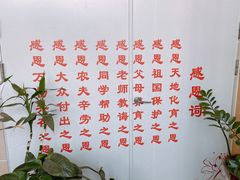 感恩词
感恩天地化育之恩
感恩祖国保护之恩
感恩父母养育之恩
感恩老师教诲之恩
感恩同学帮助之恩
感恩农夫辛劳之恩
感恩大众付出之恩
感恩万
之恩